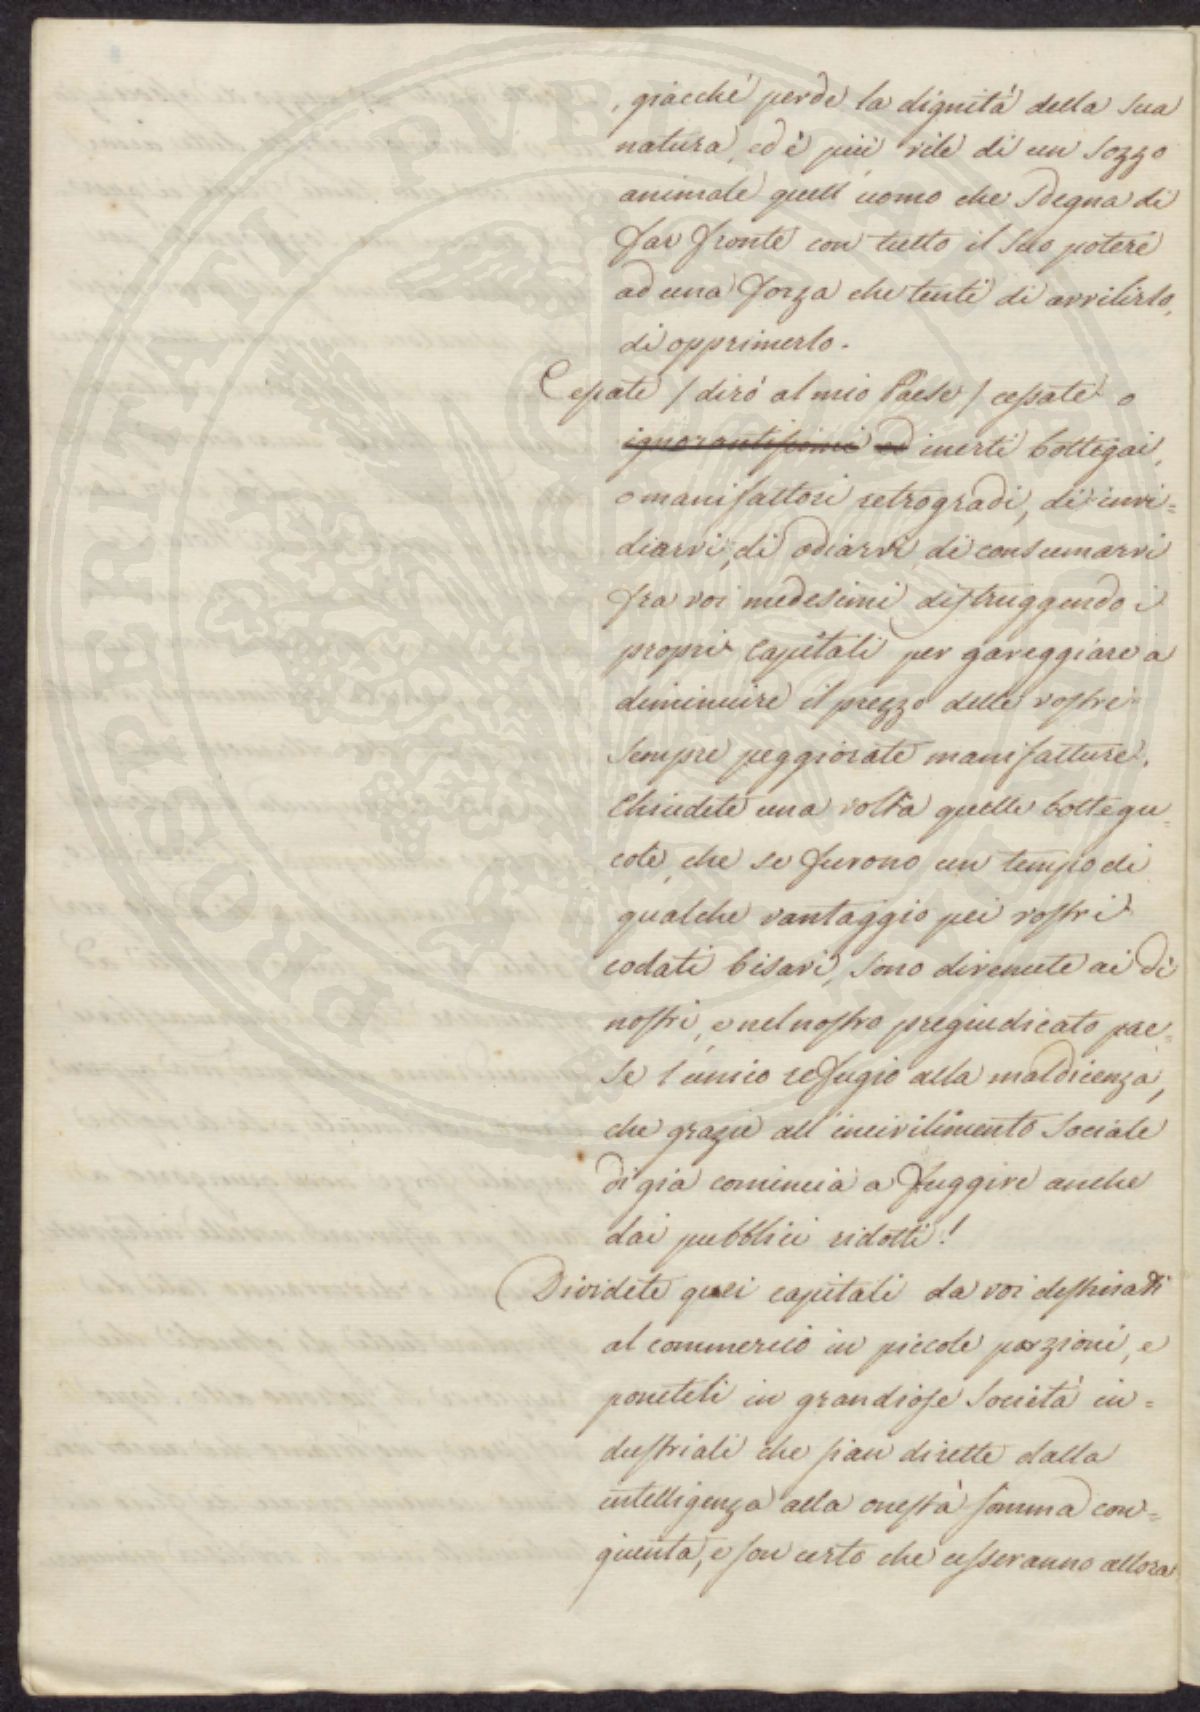 , giacché perde la dignità della sua
natura, ed è più vile di un sozzo
animale quell'uomo che sdegna di
far fronte con tutto il suo potere
ad una forza che tenti di avvilirlo,
di opprimerlo.
Cessate / dirò al mio Paese / cessate o
ignorantissimi ed inerti bottegai,
o manifattori retrogradi, di invi=
diarvi, di odiarvi, di consumarvi
fra voi medesimi distruggendo i
propri capitali per gareggiare a
diminuire il prezzo delle vostre
sempre peggiorate manifatture.
Chiudete una volta quelle bottegu=
cole, che se furono un tempo di
qualche vantaggio pei vostri
codati bisavi, sono divenute ai dì
nostri, e nel nostro pregiudicato pae=
se l'unico refugio alla maldicenza,
che grazie all'incivilimento sociale
di già comincia a fuggire anche
dai pubblici ridotti!
Dividete quei capitali da voi destinati
al commercio in piccole porzioni, e
poneteli in grandiose Società in=
dustriali che sian dirette dalla
intelligenza alla onestà somma con=
giunta, e son certo che cesseranno allora
PROSPERITATI PVBLICAE AVGENDAE